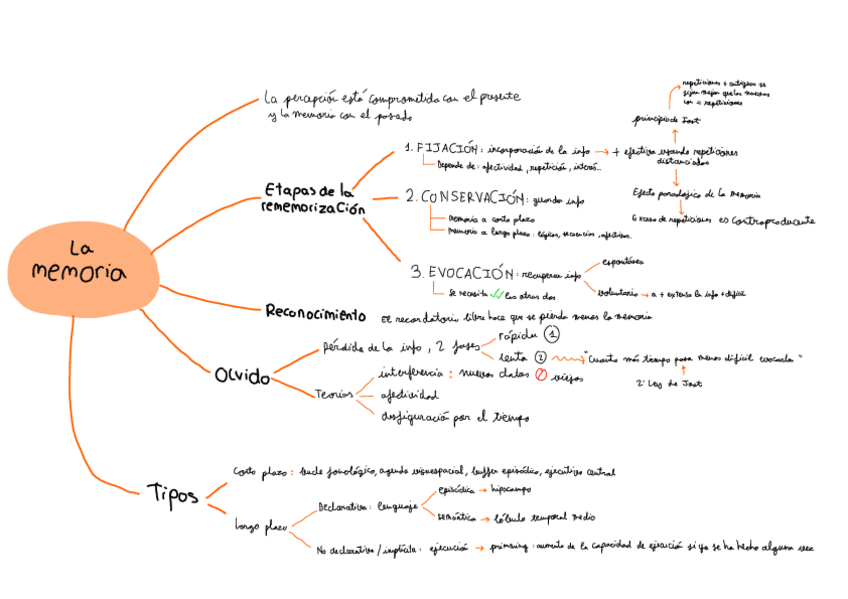 La
memoria
La percepción está comprometida con el presente
y la memoria con el pasado
Etapas de la
rememorización
1. FIJACIÓN: incorporación de la info → + efectiva usando repeticiones
distanciadas
Depende de: afectividad, repetición, interés...
principio de Jost
repeticiones + antiguas se
fijan mejor que las nuevas
con = repeticiones
Efecto paradójico de la memoria
Exceso de repeticiones es contraproducente
2. CONSERVACIÓN: guardar info
Memoria a corto plazo
Memoria a largo plazo: lógicas, secuencias, afectivas.
3. EVOCACIÓN: recuperar info
espontánea
voluntario → a + extensa la info + difícil
Se necesita las otras dos
Reconocimiento
El recordatorio libre hace que se pierda menos la memoria
Olvido
pérdida de la info, 2 fases
rápida 1
lenta 2
"Cuanto más tiempo pasa menos difícil evocarlos"
2ª Ley de Jost
Teorías
interferencia: nuevos datos viejos
afectividad
desfiguración por el tiempo
Tipos
Corto plazo: bucle fonológico, agenda visoespacial, buffer episódico, ejecutivo central
Largo plazo
Declarativa: lenguaje
episódica → hipocampo
semántica → lóbulo temporal medio
No declarativa / implícita: ejecución → priming: aumento de la capacidad de ejecución si ya se ha hecho alguna vez